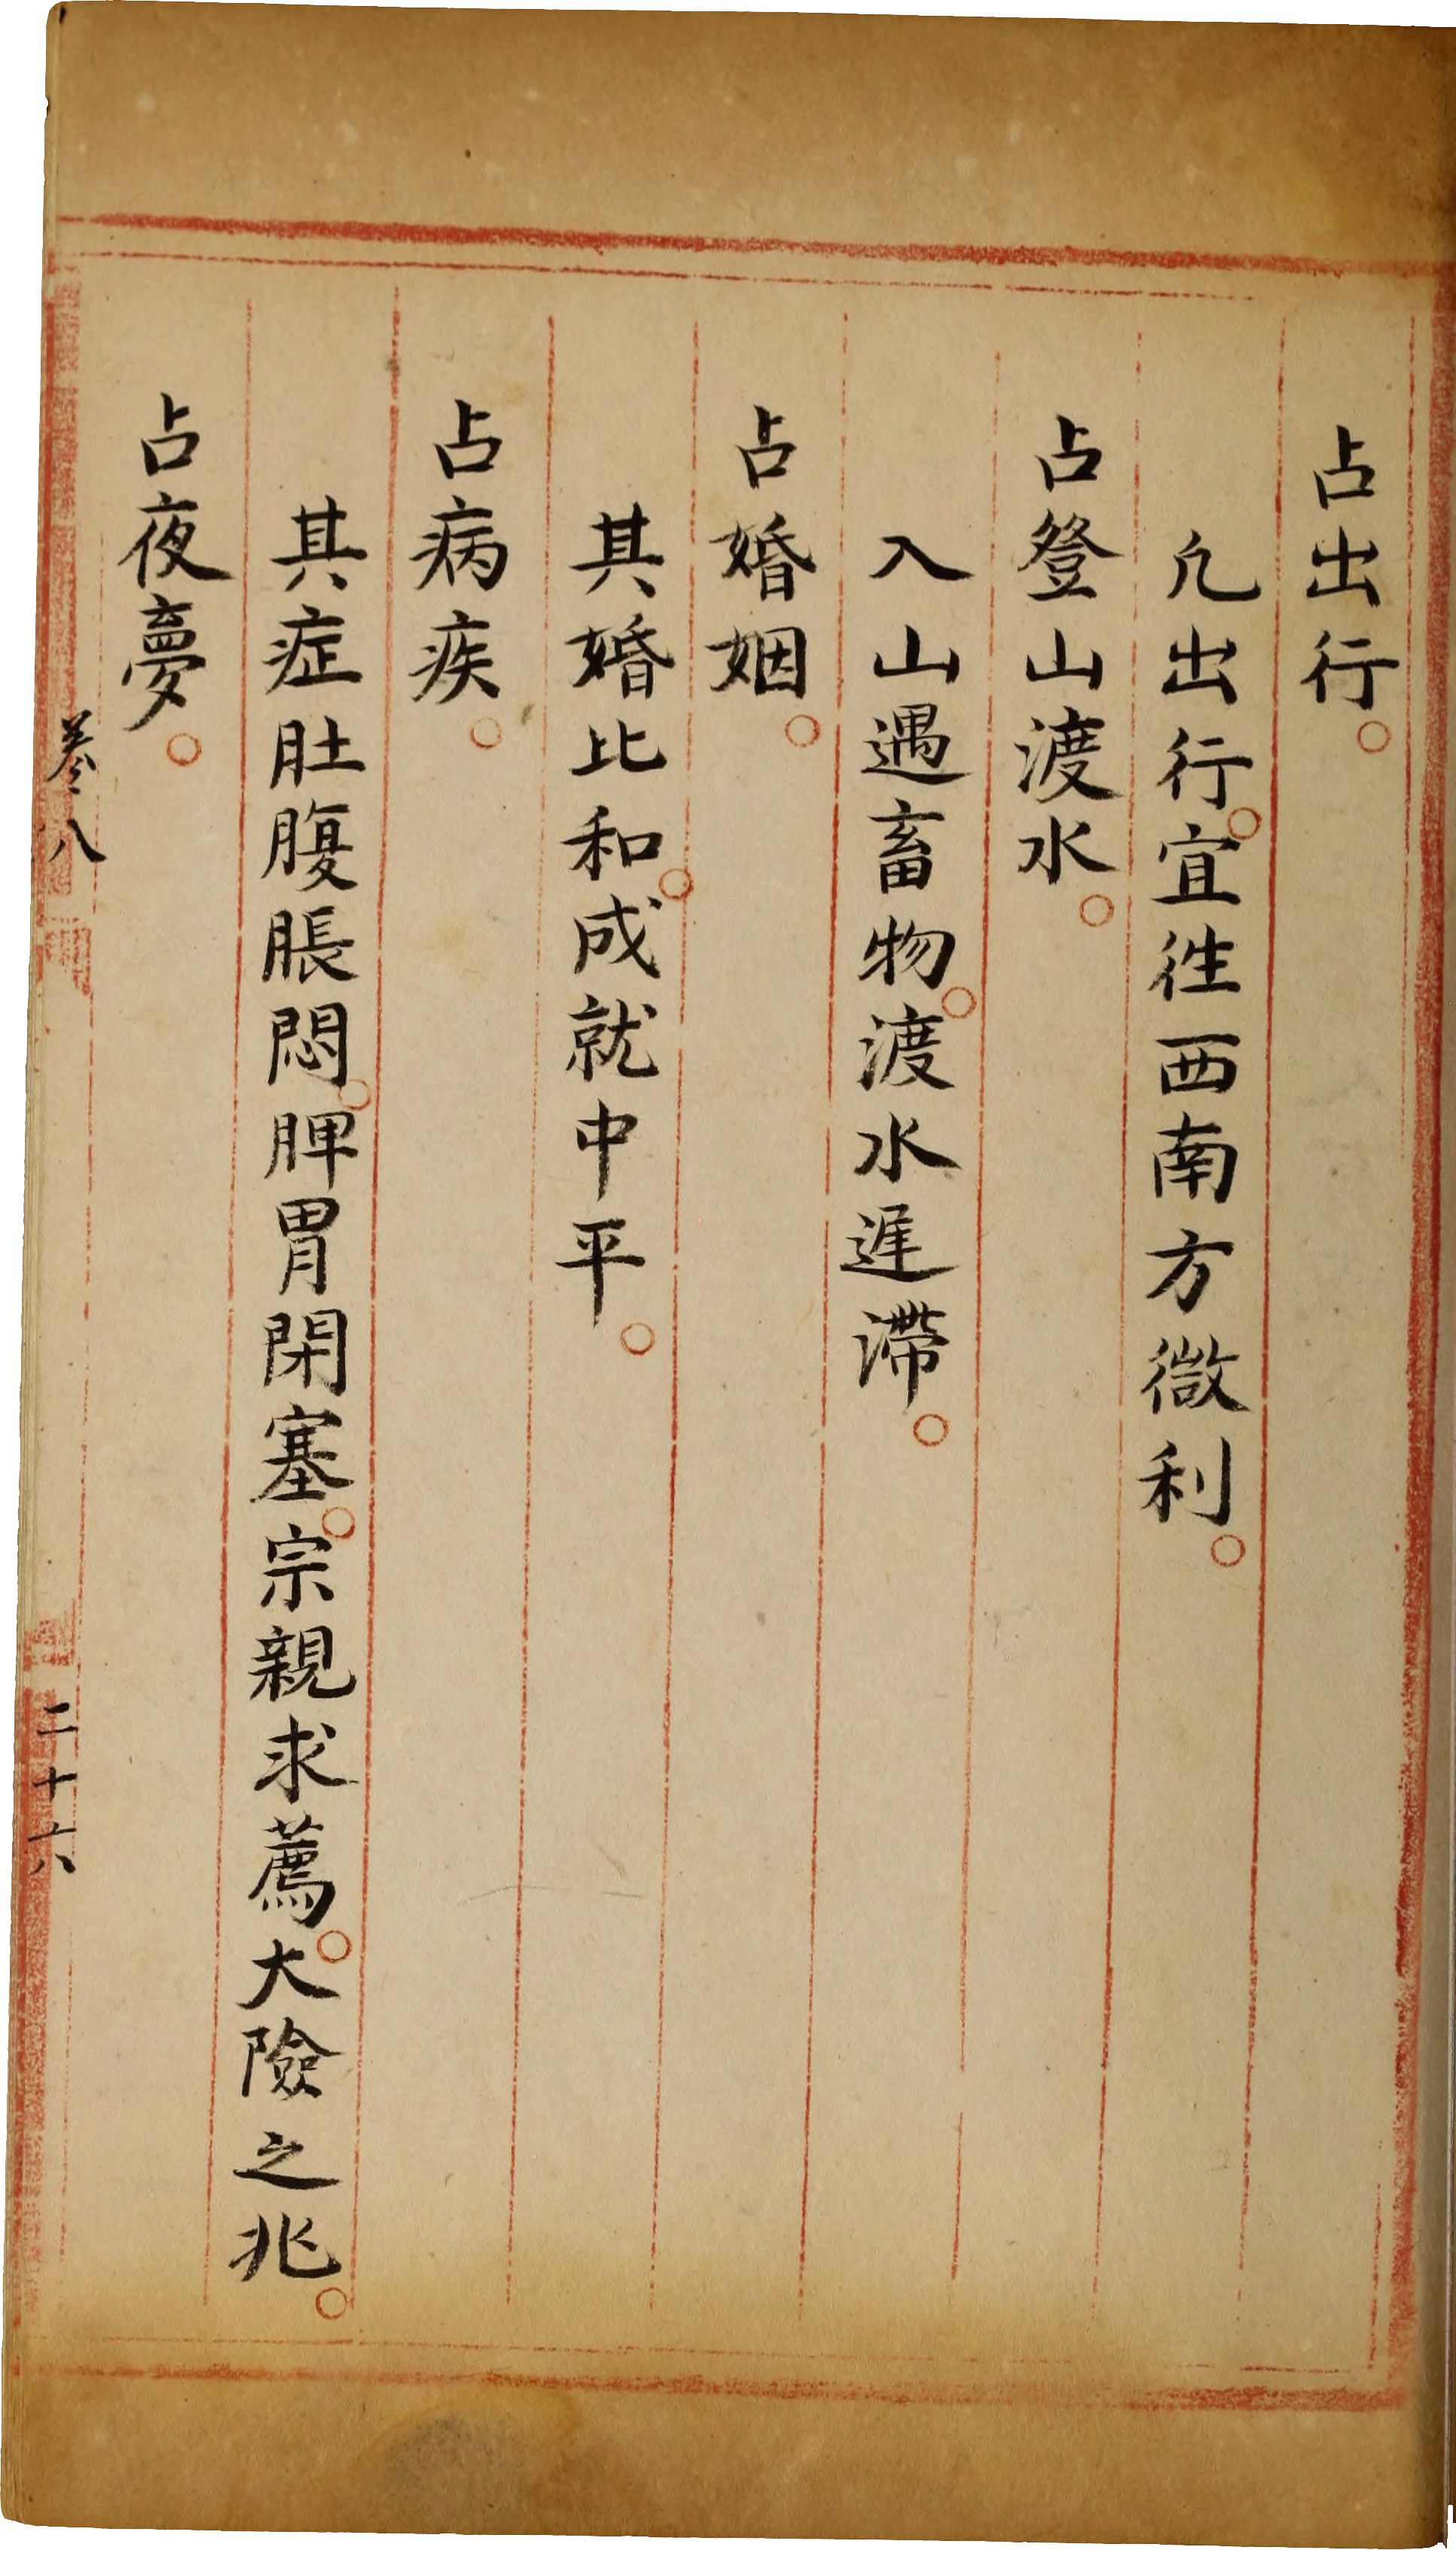 占出行。
凢出行。宜徃西南方微利。
占登山渡水。
入山遇畜物。渡水遲滯。
占婚姻。
其婚比和。成就中平。
占病疾。
其症肚腹脹悶。脾胃閉塞。宗親求薦。大險之兆。
占夜夢。
卷八
二十六